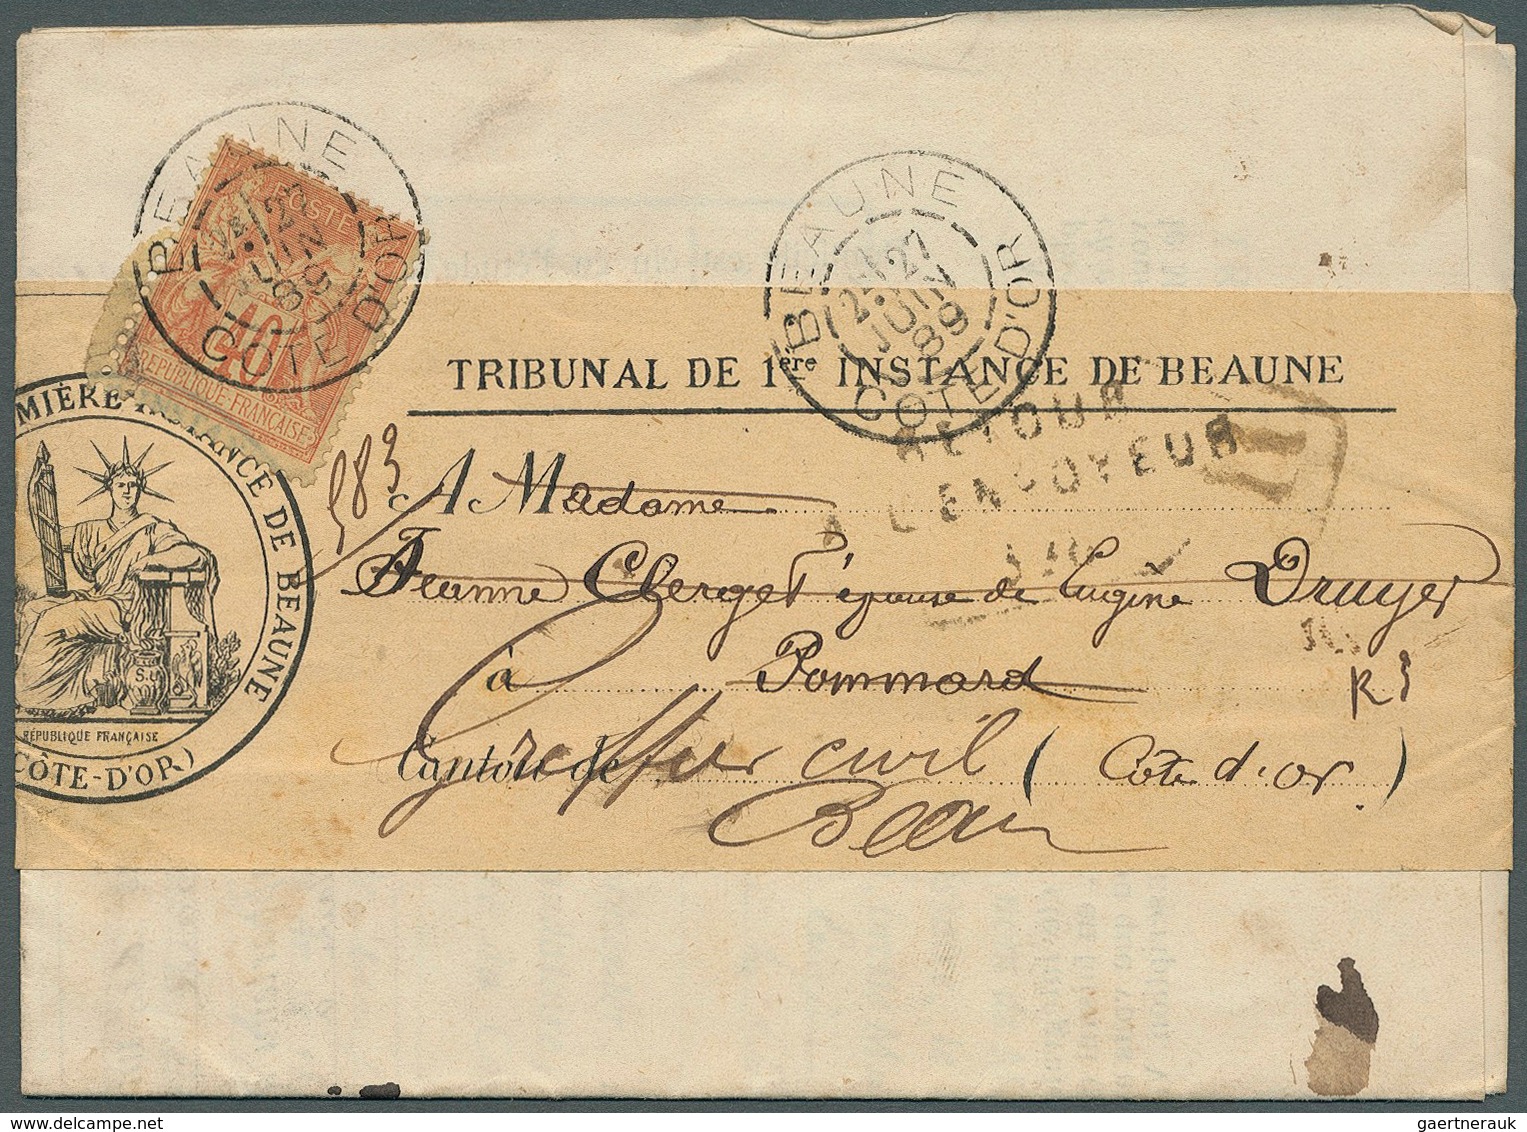 BEAUNE
28
JUIN
89
COTE D'OR
POSTE
40
RÉPUBLIQUE-FRANÇAISE
BEAUNE
27
JUIN
89
COTE D'OR
TRIBUNAL DE 1ère INSTANCE DE BEAUNE
RETOUR
A L'ENVOYEUR
R
583
A Madame
Jeanne Clerget épouse de Eugène Druyer
à Pommard
R 3
Canton de (Côte d'or)
Greffier civil
Beau
MIÈRE INSTANCE DE BEAUNE
S.U
RÉPUBLIQUE FRANÇAISE
(CÔTE-D'OR)
gaertnerauk